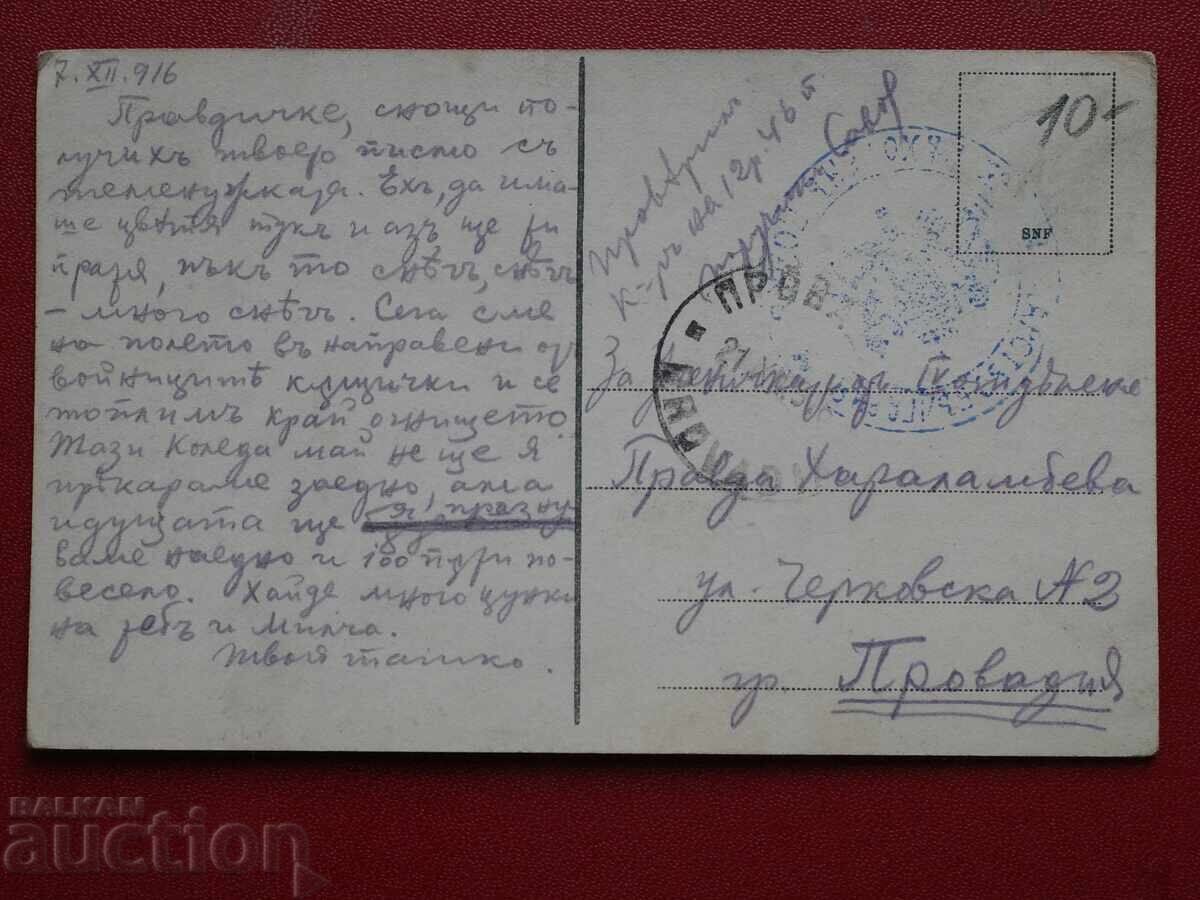 7.XII.916
Правдичке, снощи по-
лучихъ твоето писмо съ
теменужката. Ехъ, да има-
ше цвѣтя тукъ и азъ ще ти
пратя, пъкъ то снѣгъ, снѣгъ
- много снѣгъ. Сега сме
на полето въ направени от
войницитѣ къщички и се
топлимъ край огнището.
Тази Коледа май не ще я
прѣкараме заедно, ама
идущата ще я празну-
ваме наедно и 100 пѫти по-
весело. Хайде много цунки
на тебъ и Милча.
Твой татко.
Провѣрилъ
К-ръ на 12 гр. 46 п
Савов
10-
SNF
ПРОВА
За
Правда Хараламбева
ул. Черковска № 2
гр. Провадия
BALKAN
auction